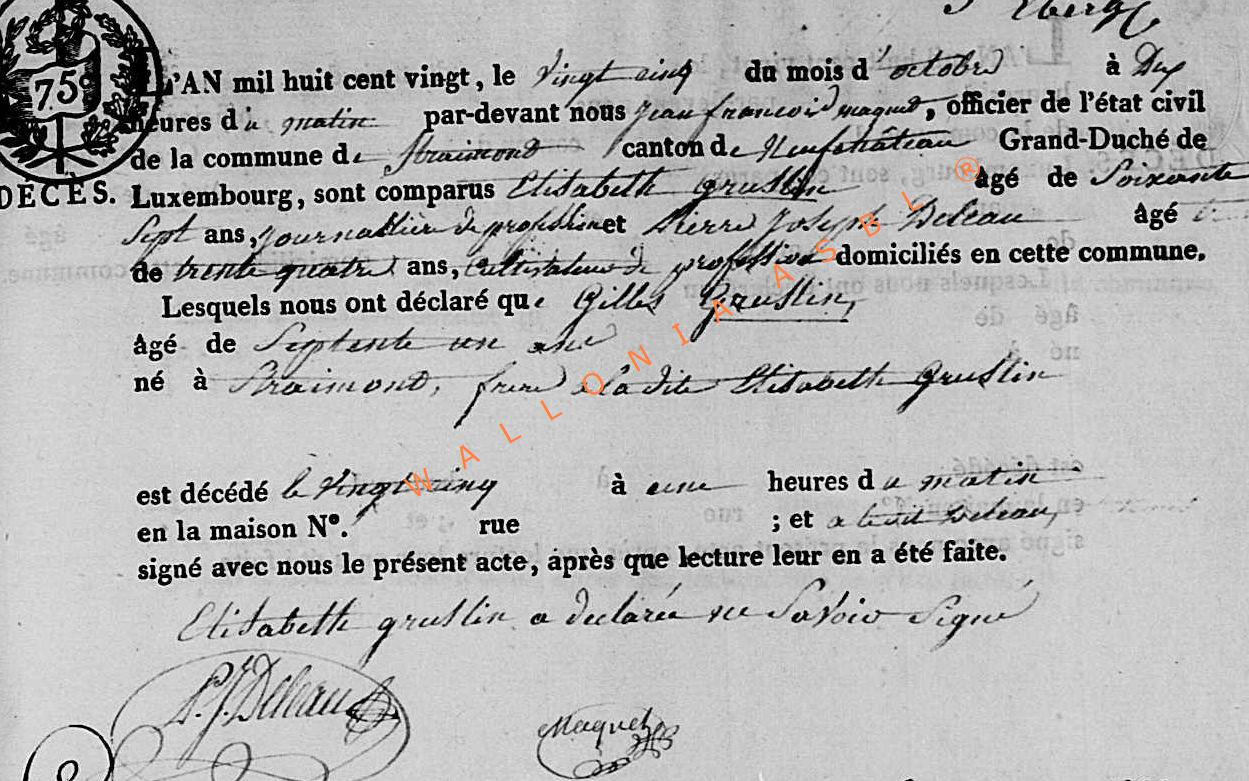 75
DÉCÈS.
L'AN mil huit cent vingt, le vingt cinq du mois d'octobre à Dix
heures du matin par-devant nous jean francois maquet, officier de l'état civil
de la commune de Straimont canton de Neufchâteau Grand-Duché de
Luxembourg, sont comparus Elisabeth gruslin âgé de Soixante
Sept ans, journallière de profession et Pierre Joseph Deleau âgé
de trente quatre ans, cultivateur de profession domiciliés en cette commune.
Lesquels nous ont déclaré que Gilles Gruslin,
âgé de Septente un ans
né à Straimont, frere a la dite Elisabeth Gruslin
est décédé le vingt cinq à une heures du matin
en la maison N°. rue ; et a ledit Deleau,
signé avec nous le présent acte, après que lecture leur en a été faite.
Elisabeth gruslin a declarée ne Savoir Signé
P. J. Deleau
Maquet
WALLONIA ASBL ®